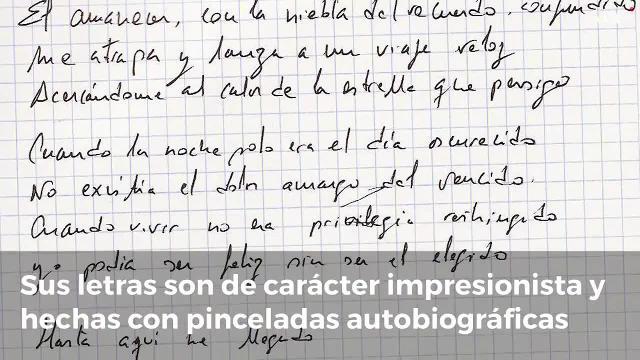 El amanecer, con la niebla del recuerdo, confundido
me atrapa y lanza a un viaje veloz
Acercándome al calor de la estrella que persigo
Cuando la noche solo era el día oscurecido
No existía el dolor amargo del vencido.
Cuando vivir no era privilegio restringido
yo podía ser feliz sin ser el elegido
Sus letras son de carácter impresionista y
hechas con pinceladas autobiográficas
Hasta aquí he llegado